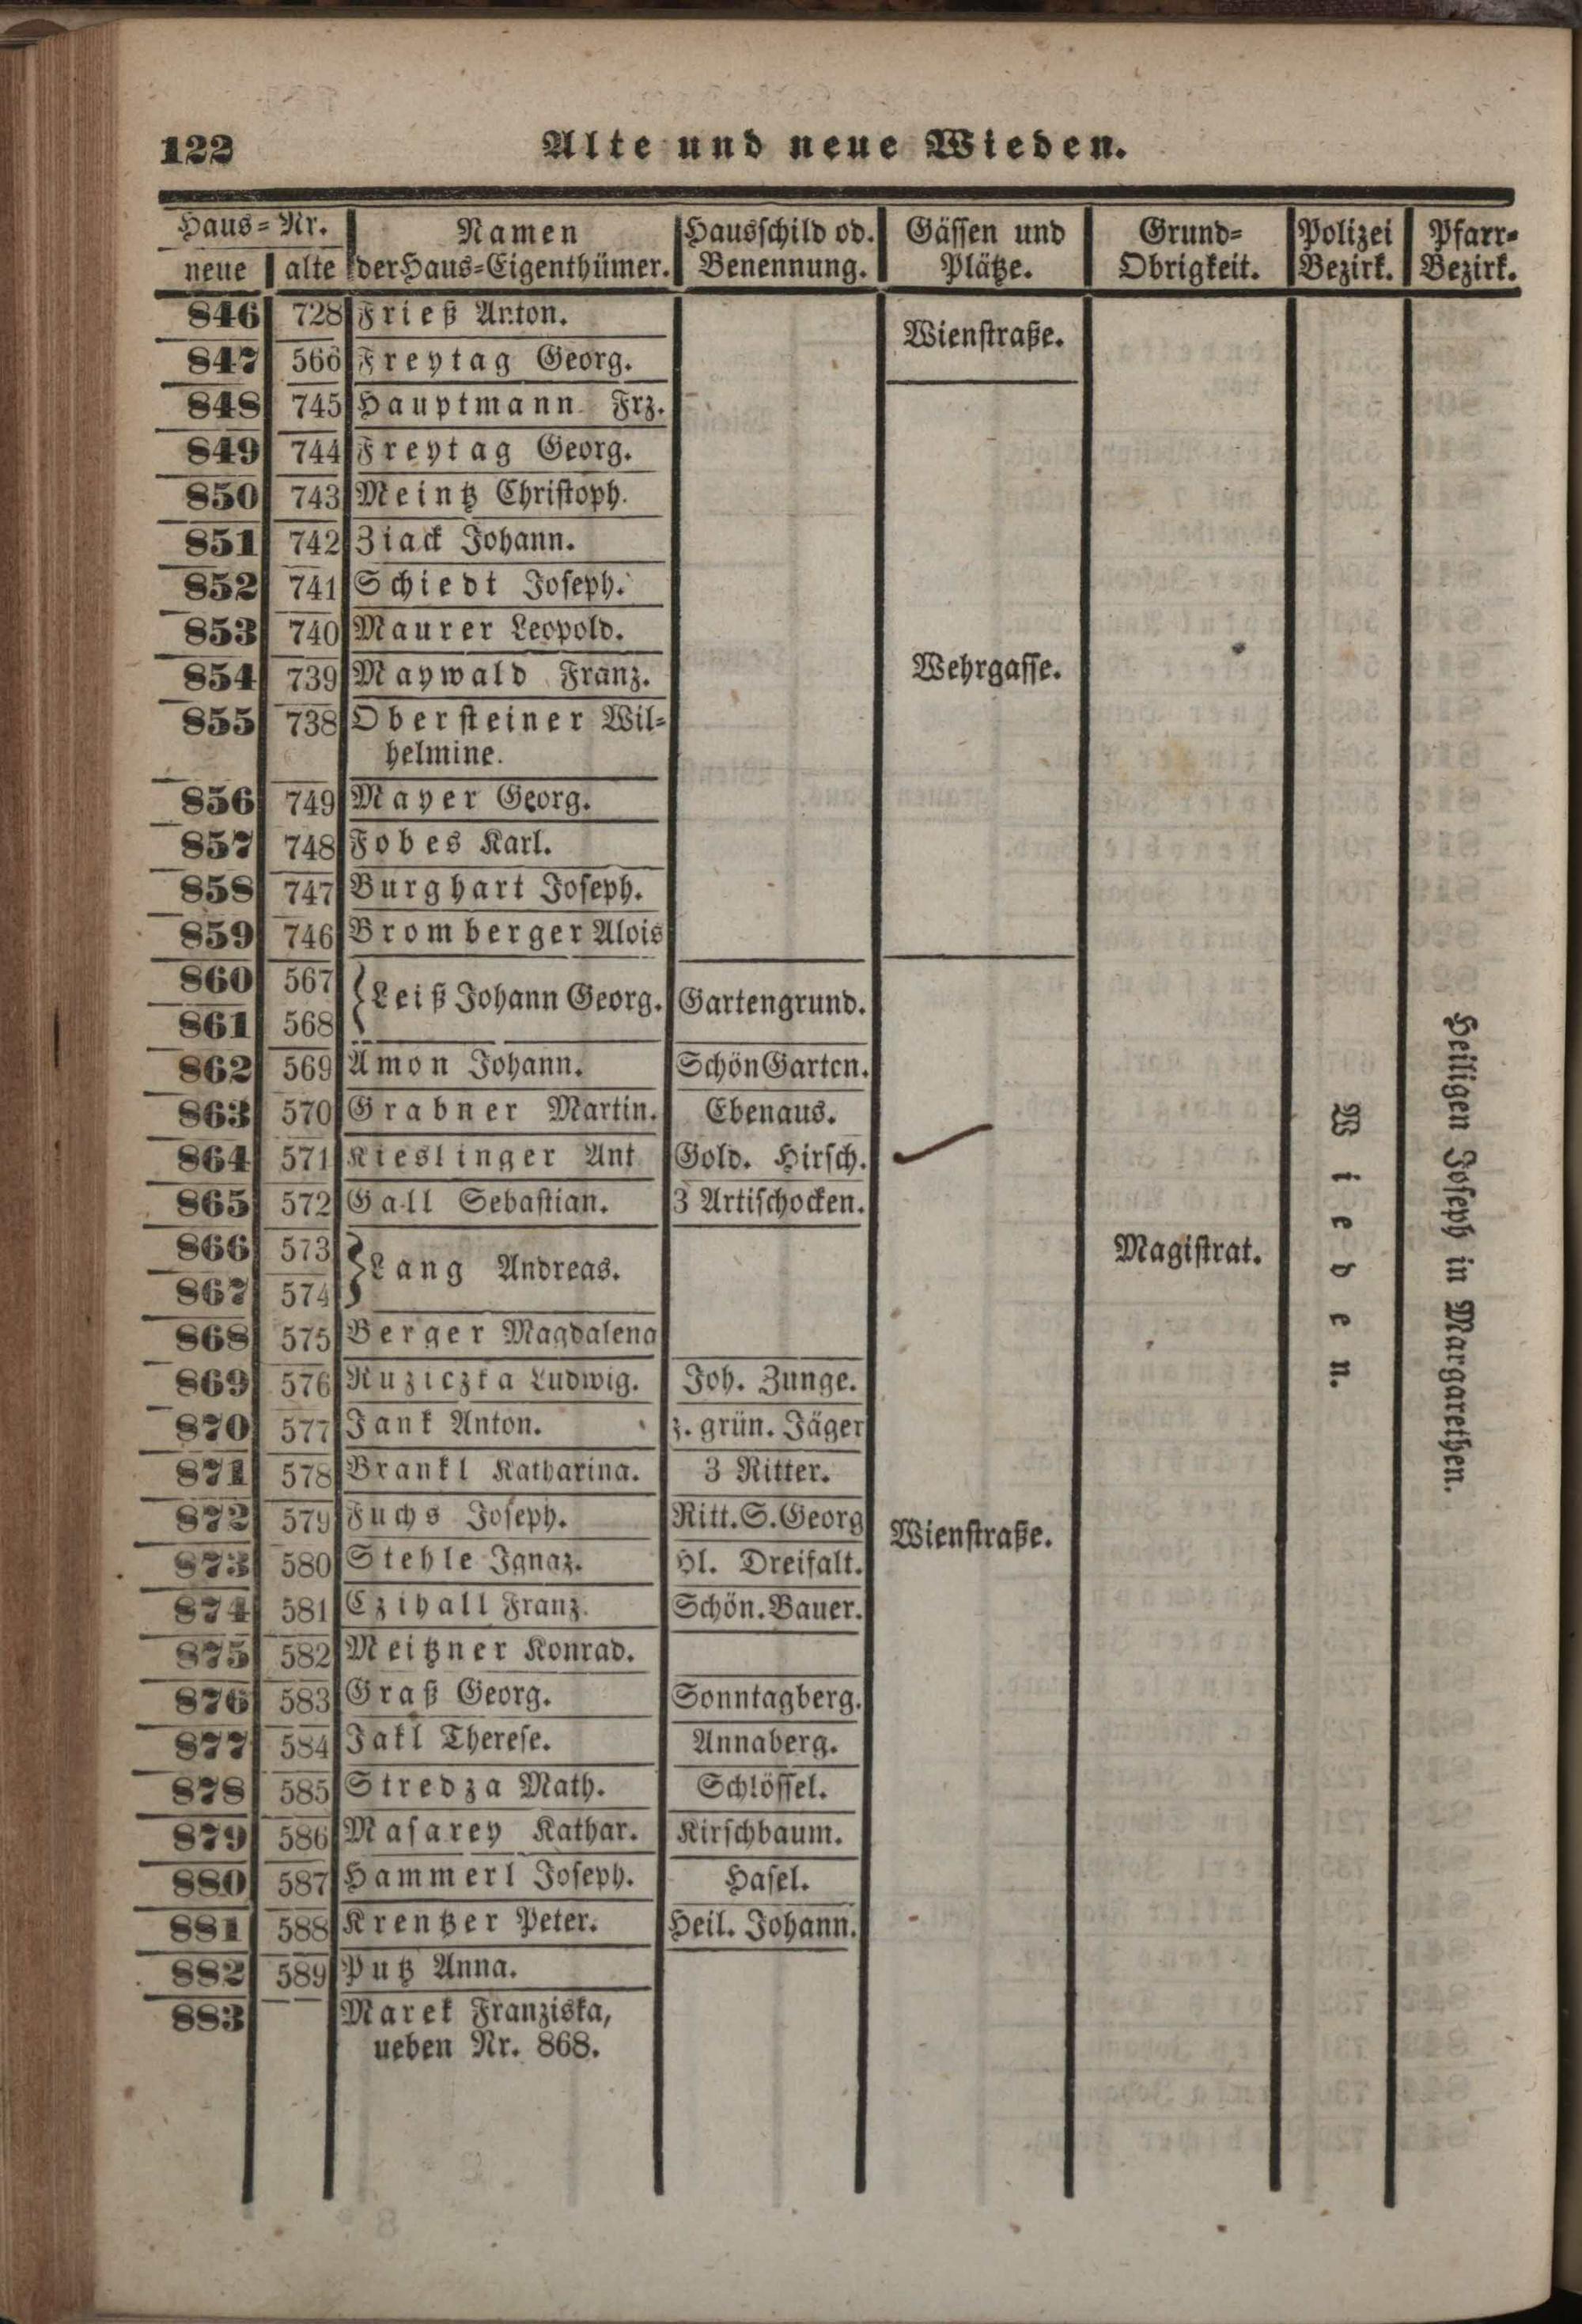 122 Alte und neue Wieden.
Haus-Nr. Namen Hausschild od. Gässen und Grund- Polizei Pfarr-
neue alte der Haus-Eigenthümer. Benennung. Plätze. Obrigkeit. Bezirk. Bezirk.
846 728 Frieß Anton.
Wienstraße.
847 566 Freytag Georg.
848 745 Hauptmann Frz.
849 744 Freytag Georg.
850 743 Meintz Christoph.
851 742 Ziack Johann.
852 741 Schiedt Joseph.
853 740 Maurer Leopold.
854 739 Maywald Franz. Wehrgasse.
855 738 Obersteiner Wil-
helmine.
856 749 Mayer Georg.
857 748 Fobes Karl.
858 747 Burghart Joseph.
859 746 Bromberger Alois
860 567
Leiß Johann Georg. Gartengrund.
861 568
862 569 Amon Johann. Schön Garten.
863 570 Grabner Martin. Ebenaus.
864 571 Kieslinger Ant Gold. Hirsch.
865 572 Gall Sebastian. 3 Artischocken.
866 573
Lang Andreas. Magistrat. Wieden. Heiligen Joseph in Margarethen.
867 574
868 575 Berger Magdalena
869 576 Ruziczka Ludwig. Joh. Zunge.
870 577 Jank Anton. z. grün. Jäger
871 578 Brankl Katharina. 3 Ritter.
872 579 Fuchs Joseph. Ritt. S. Georg Wienstraße.
873 580 Stehle Ignaz. Hl. Dreifalt.
874 581 Czihall Franz. Schön. Bauer.
875 582 Meitzner Konrad.
876 583 Graß Georg. Sonntagberg.
877 584 Jakl Therese. Annaberg.
878 585 Stredza Math. Schlössel.
879 586 Masarey Kathar. Kirschbaum.
880 587 Hammerl Joseph. Hasel.
881 588 Krentzer Peter. Heil. Johann.
882 589 Putz Anna.
883 Marek Franziska,
ueben Nr. 868.